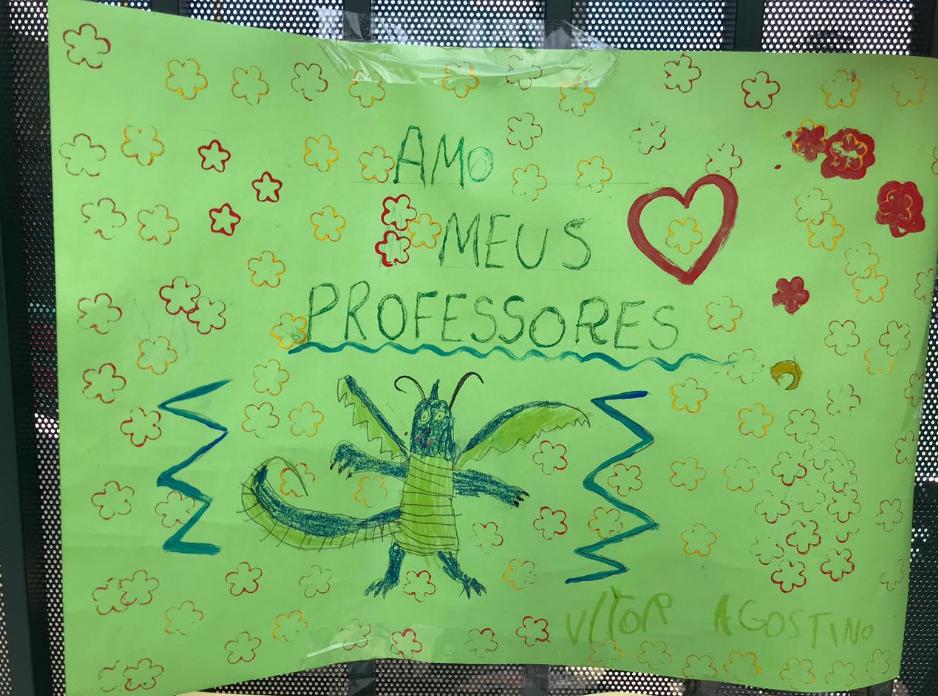 AMO
MEUS
PROFESSORES
VITOR AGOSTINO